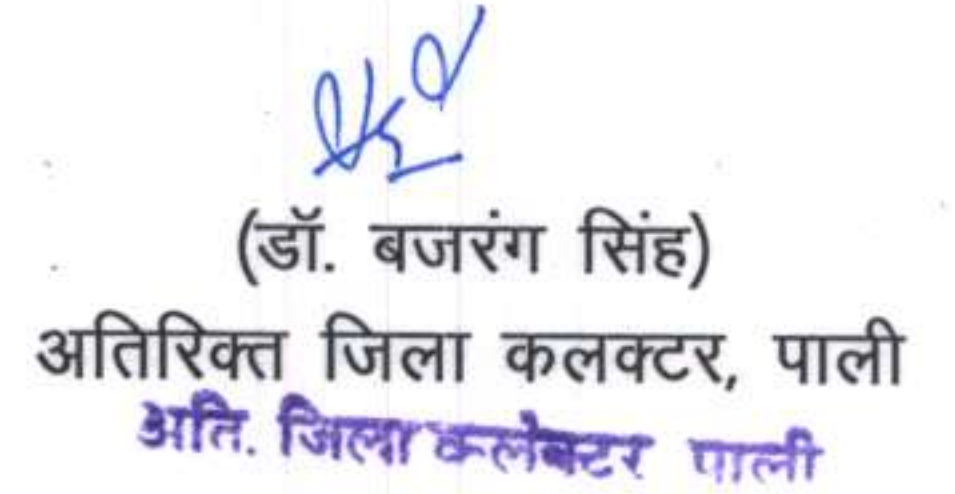 (डॉ. बजरंग सिंह)
अतिरिक्त जिला कलक्टर, पाली
अति. जिला कलेक्टर पाली